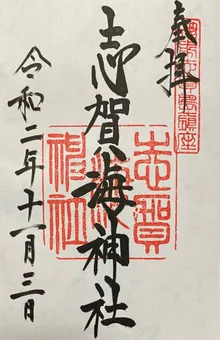 奉拝
志賀海神社
志賀海神社
令和二年十一月三日